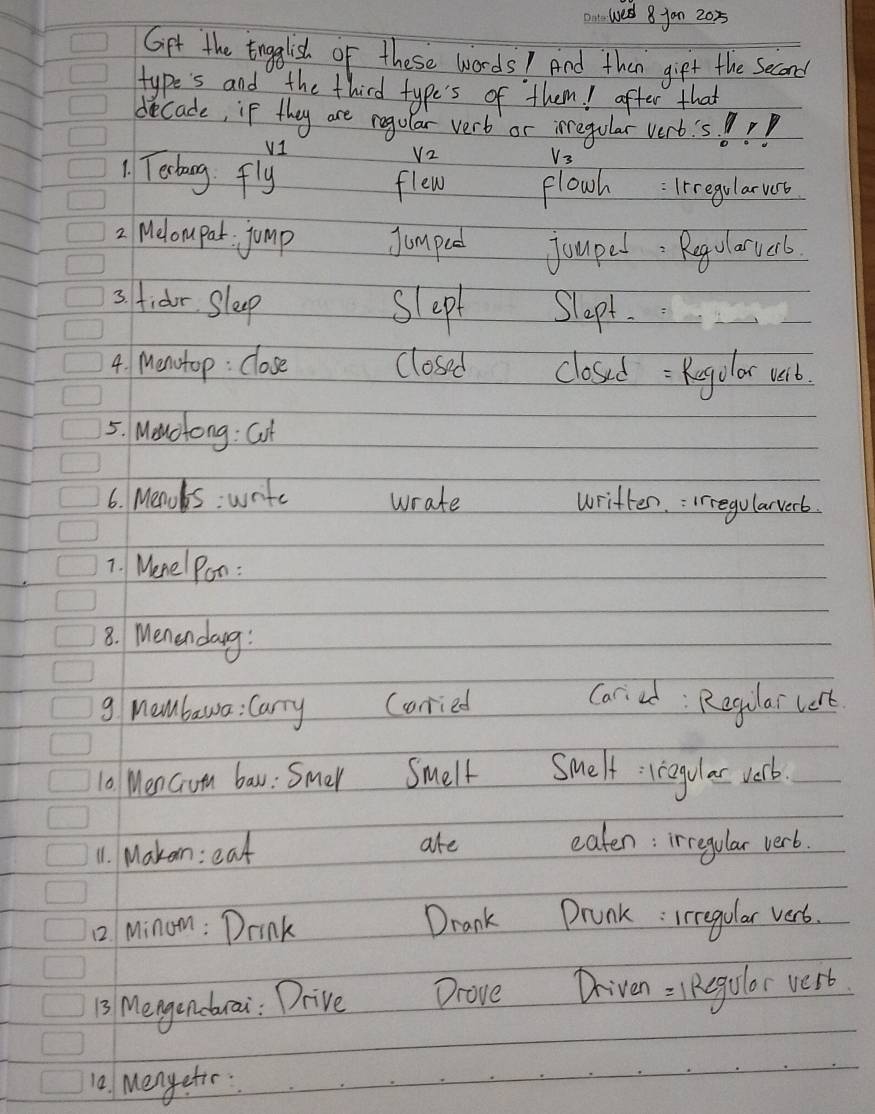 Date: Wed 8 Jan 2025
Gift the Engglish of these words! And then gift the second
type's and the third type's of them! after that
decade, if they are regular verb or irregular verb.'s.!!!
V1 V2 V3
1. Terbang: fly flew flowh : Irregular verb
2 Melompat: jump Jumped jumped : Regularverb.
3. tidur. Sleep Slept Slept. :
4. Menutop: Close Closed Closed = Regular verb.
5. Memotong: Cut
6. Menulis: write wrate written. : irregularverb.
7. Menelpon:
8. Menendang:
9 Membawa: Carry Carried Caried : Regular vert.
10. Mencium bau: Smel Smelt Smelt : iregular verb.
11. Makan: eat ate eaten: irregular verb.
12 Minum: Drink Drank Drunk : irregular verb.
13 Mengendarai: Drive Drove Driven = iRegular verb.
14. Menyetir: . . . . . . . . .